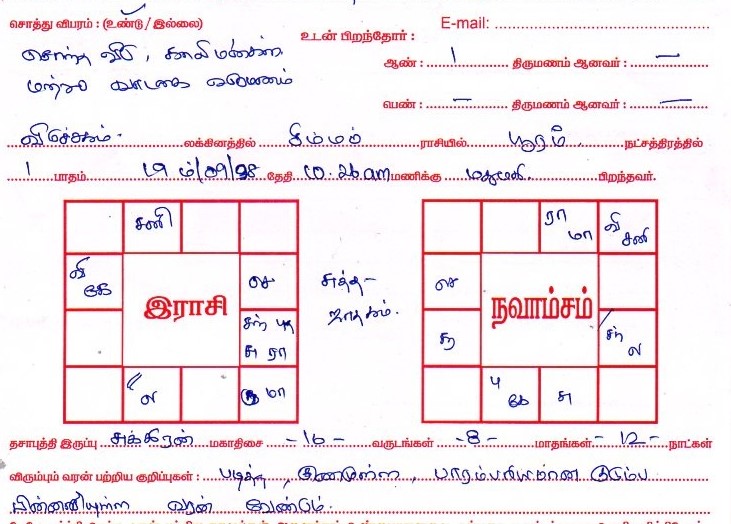 சொத்து விபரம் : (உண்டு / இல்லை)
E-mail:
சொந்த வீடு, காலி மனைகள்
உடன் பிறந்தோர் :
ஆண் : 1 திருமணம் ஆனவர் : —
மற்றும் வாடகை வருமானம்
பெண் : — திருமணம் ஆனவர் : —
விருச்சகம் லக்கினத்தில் சிம்மம் ராசியில் பூரம் நட்சத்திரத்தில்
1 பாதம் 19/09/98 தேதி 10.26 am மணிக்கு பிறந்தவர்.
சனி
ரா
மா
வி
சனி
வி
கே
செ
சுத்த
ஜாதகம்.
செ
இராசி
நவாம்சம்
சந் புத
சு ரா
சூ
சந்
ல
ல
மா
கே
சு
தசாபுத்தி இருப்பு சுக்கிரன் மகாதிசை - 16 - வருடங்கள் - 8 - மாதங்கள் - 12 - நாட்கள்
விரும்பும் வரன் பற்றிய குறிப்புகள் : படித்த, குணமுள்ள, பாரம்பரியமான குடும்ப
பின்னணியுள்ள வரன் வேண்டும்.